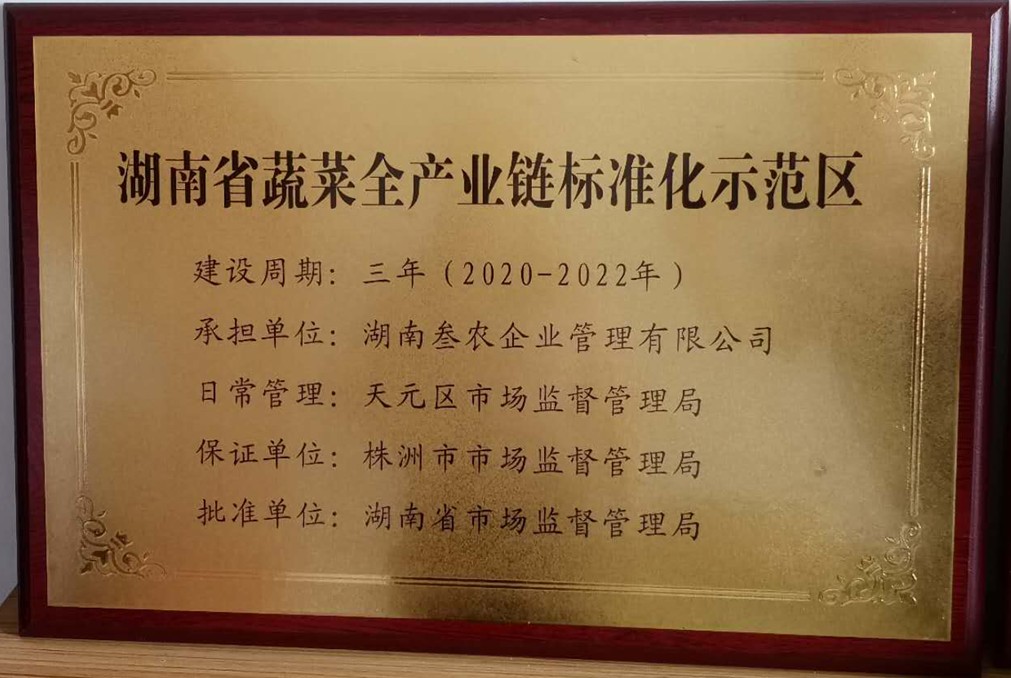 湖南省蔬菜全产业链标准化示范区
建设周期：三年（2020-2022年）
承担单位：湖南叁农企业管理有限公司
日常管理：天元区市场监督管理局
保证单位：株洲市市场监督管理局
批准单位：湖南省市场监督管理局